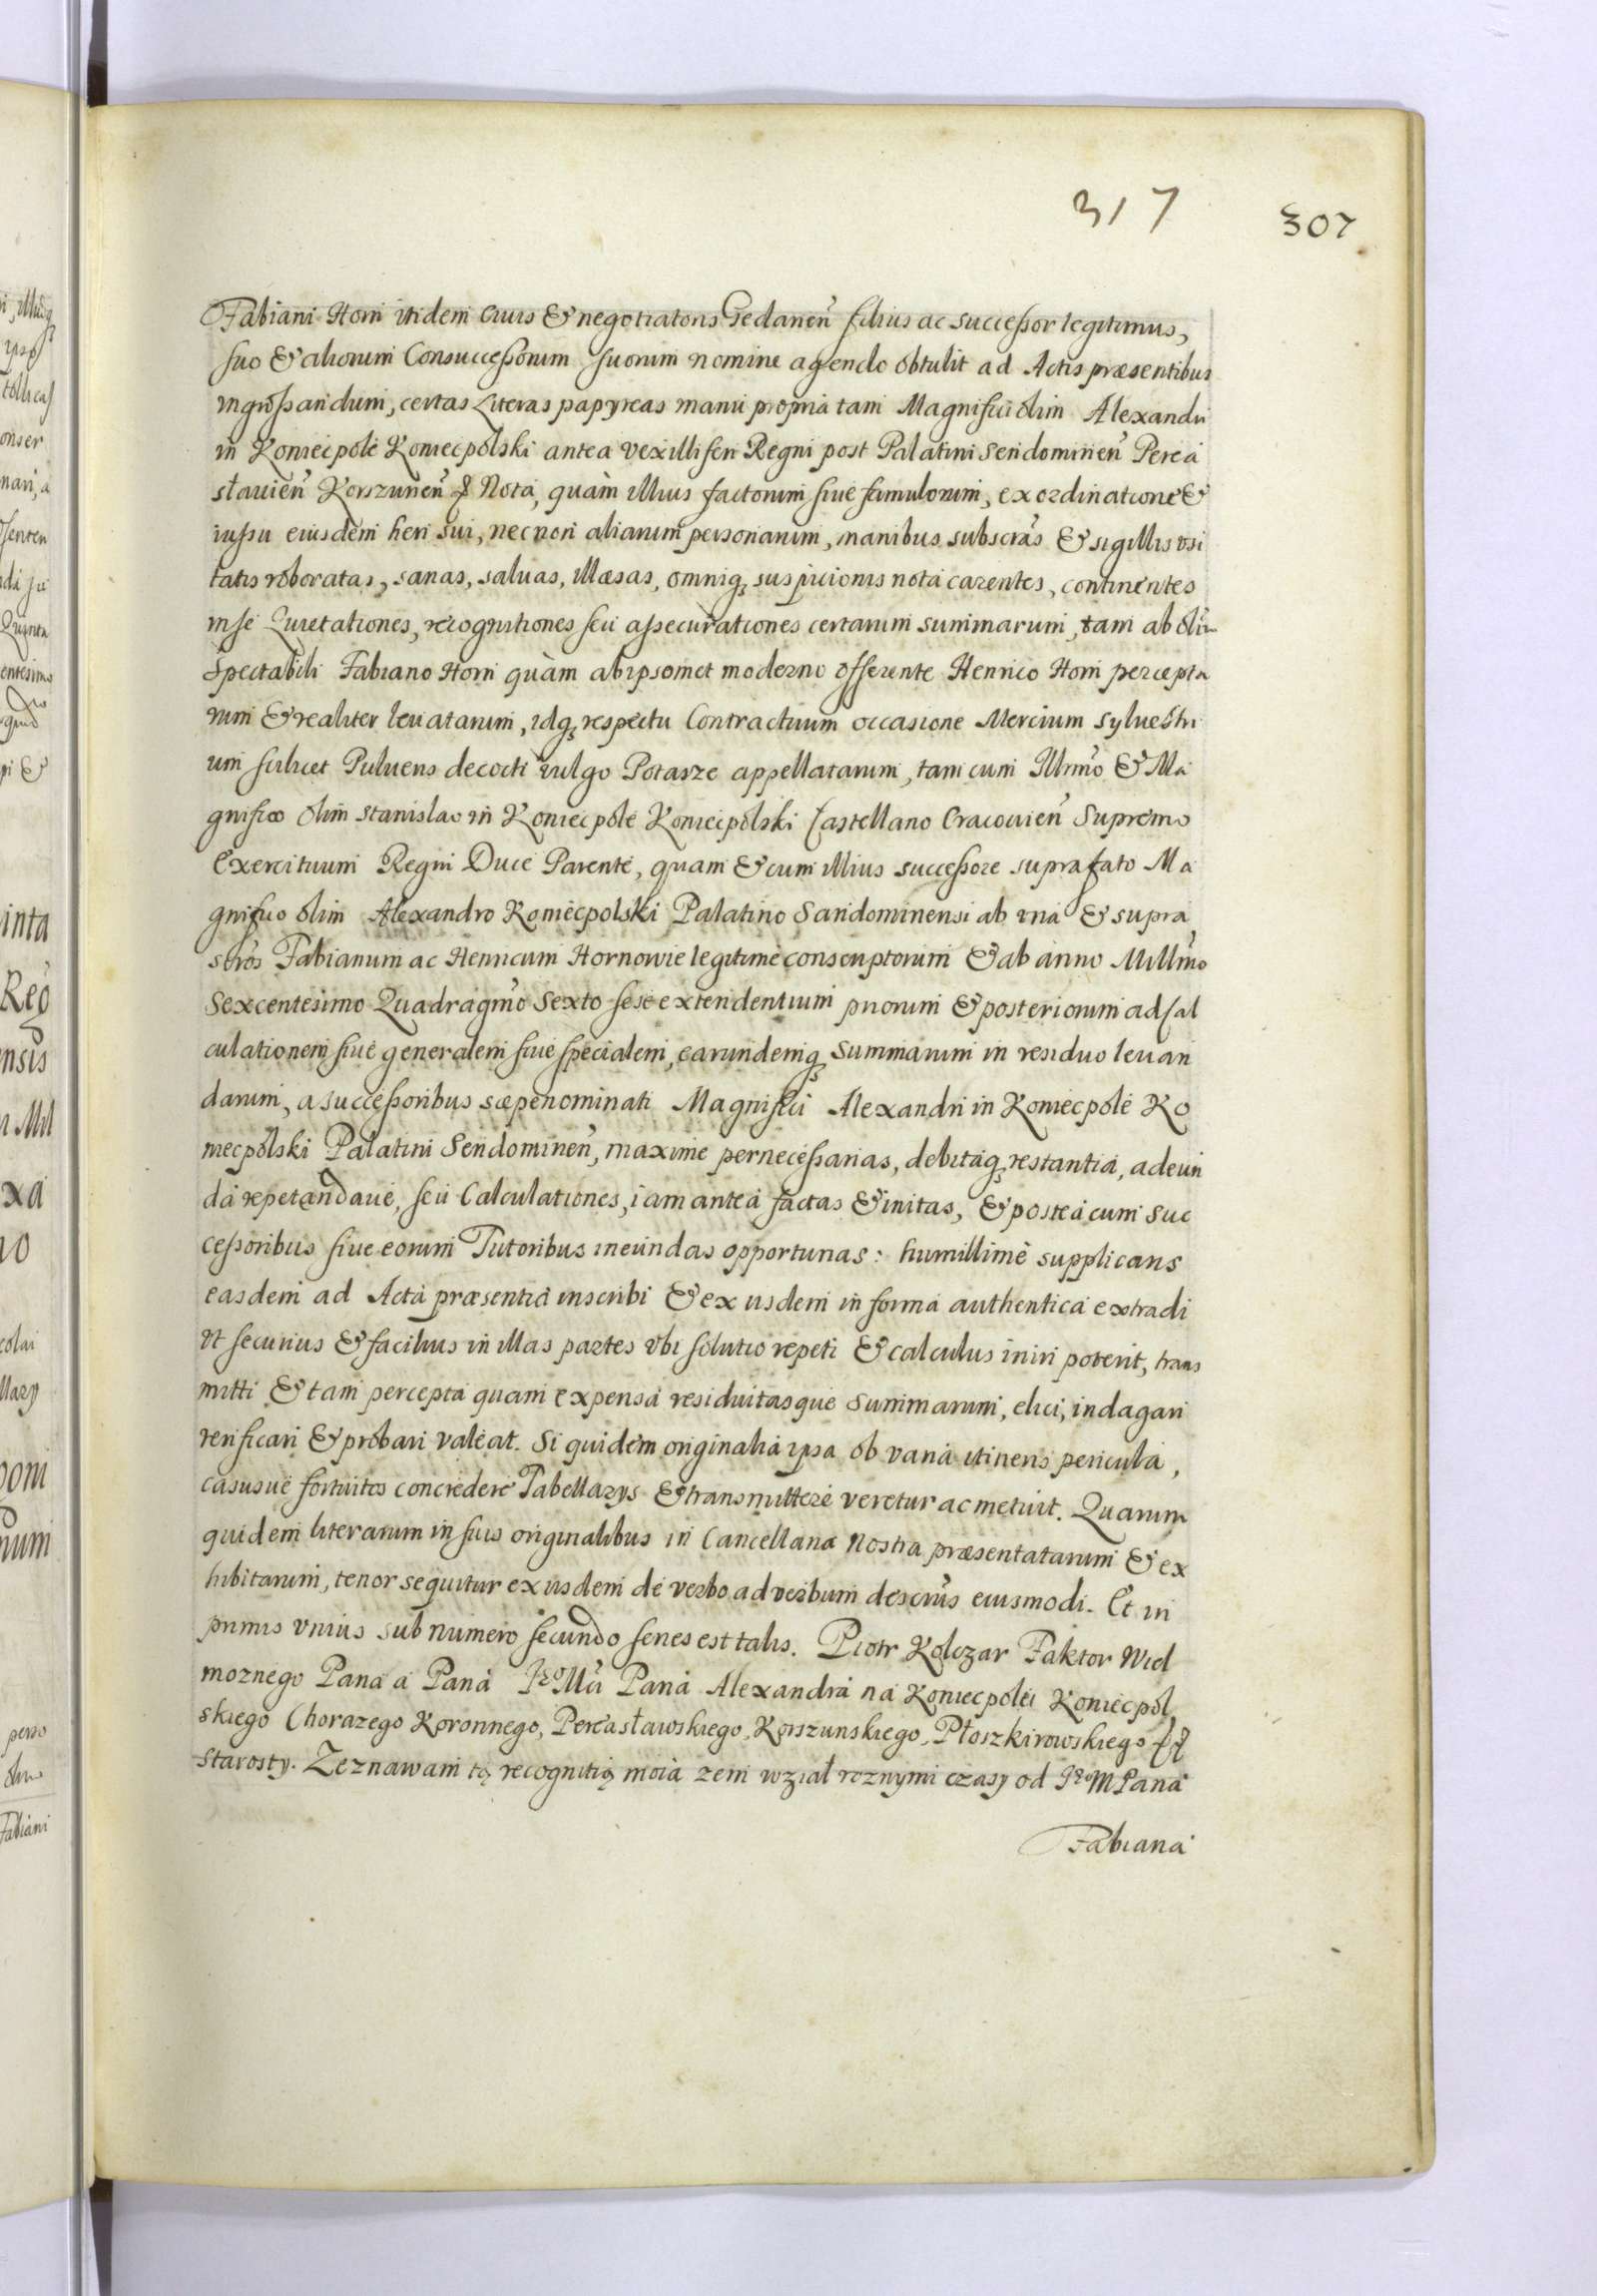 317 307
Fabiani Horn itidem Ciuis & negotiatoris Gedanen̄ filius ac successor legitimus,
suo & aliorum Consuccessorum suorum nomine agendo obtulit ad Actis præsentibus
ingrossandum, certas Literas papyreas manu propria tam Magnifici olim Alexandri
in Koniecpole Koniecpolski antea vexilliferi Regni post Palatini Sendominien̄ Perea
słauien̄ Korszunen̄ & Nota, quàm illius factorum siue famulorum, ex ordinatione &
iussu eiusdem heri sui, necnon aliarum personarum, manibus subscrās & sigillis vsi
tatis roboratas, sanas, saluas, illæsas, omniq; suspicionis nota carentes, continentes
in se Quietationes, recognitiones seu assecurationes certarum summarum, tam ab olim
Spectabili Fabiano Horn quàm ab ipsomet moderno offerente Henrico Horn percepta
rum & realiter leuatarum, idq; respectu Contractuum occasione Mercium syluestri
um scilicet Pulueris decocti vulgo Potasze appellatarum, tam cum Illrmo & Ma
gnifico olim Stanislao in Koniecpole Koniecpolski Castellano Cracouien̄ Supremo
Exercituum Regni Duce Parente, quam & cum illius successore suprafato Ma
gnifico olim Alexandro Koniecpolski Palatino Sandominensi ab vna & supra
scrōs Fabianum ac Henricum Hornowie legitimè conscriptorum & ab anno Millmo
Sexcentesimo Quadragmo Sexto sese extendentium priorum & posteriorum ad Cal
culationem siue generalem siue specialem, earundemq; summarum in residuo leuan
darum, a successoribus sæpenominati Magnifici Alexandri in Koniecpole Ko
niecpolski Palatini Sendominen̄, maxime pernecessarias, debitaq; restantia, adeun
da repetandaue, seu Calculationes, iam antea factas & initas, & postea cum suc
cessoribus siue eorum Tutoribus ineundas opportunas: humillimè supplicans
easdem ad Acta præsentia inscribi & ex iisdem in forma authentica extradi
vt securius & facilius in illas partes vbi solutio repeti & calculus iniri poterit, trans
mitti & tam percepta quam expensa residuitasque summarum, elici, indagari
verificari & probari valeat. Si quidem originalia ipsa ob varia itineris pericula,
casusue fortuitos concredere Tabellarys & transmittere veretur ac metuit. Quarum
quidem literarum in suis originalibus in Cancellaria Nostra præsentatarum & ex
hibitarum, tenor sequitur ex iisdem de verbo ad verbum descrīs eiusmodi. Et in
primis vnius sub numero secundo series est talis. Piotr Kolczar Faktor Wiel
moznego Pana a Pana Jeo Mci Pana Alexandra na Koniecpolu Koniecpol
skiego Chorazego Koronnego, Pereasławskiego, Korszunskiego, Płoszkirowskiego &&
Starosty. Zeznawam tą recognitią moia zem wział roznymi czasy od Jeo M Pana
Fabiana